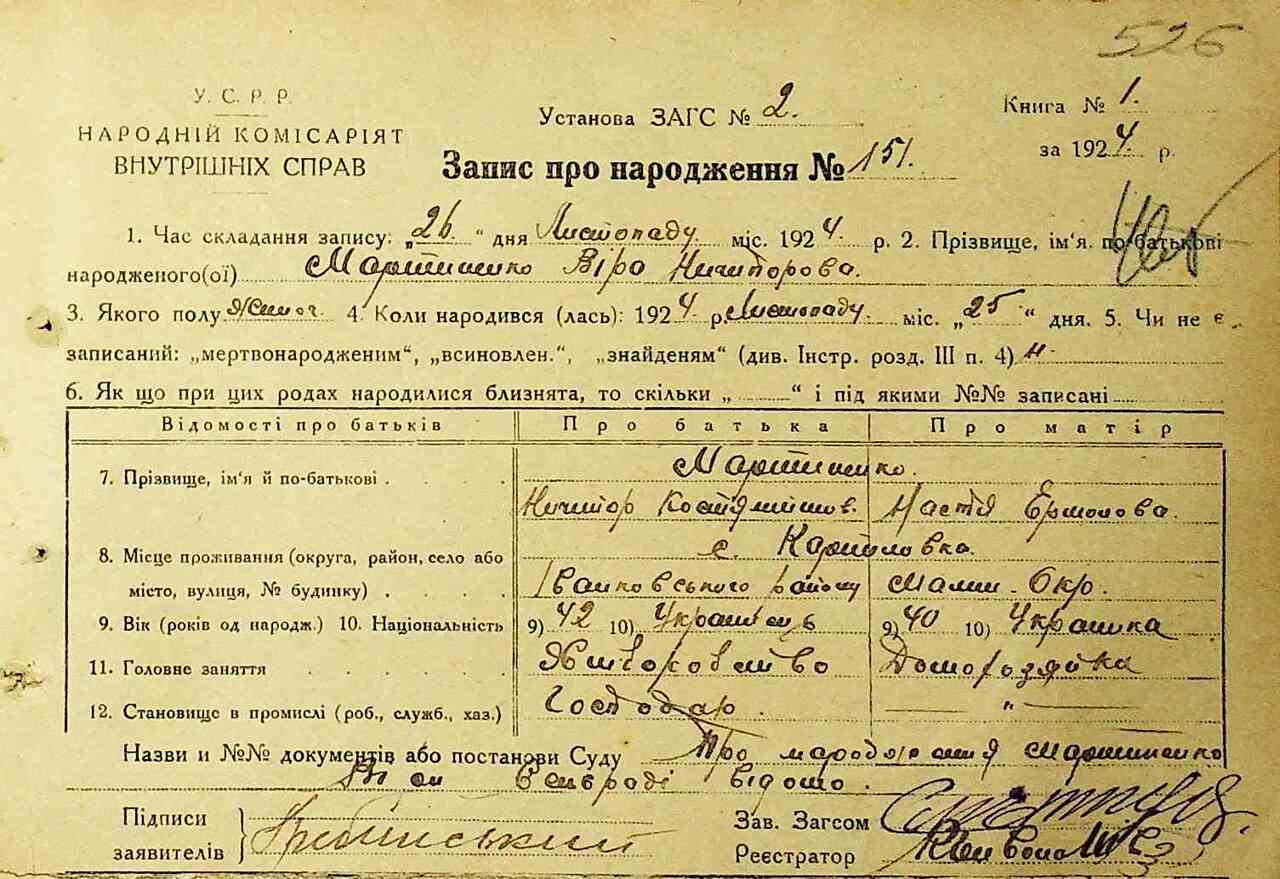 526
У. С. Р. Р.
НАРОДНІЙ КОМІСАРІЯТ
ВНУТРІШНІХ СПРАВ
Установа ЗАГС № 2.
Книга № 1.
за 1924 р.
Запис про народження № 151.
1. Час складання запису: „26“ дня Листопаду міс. 1924 р. 2. Прізвище, ім'я. по-батькові
народженого(ої) Мартиненко Віро Ничипорова.
3. Якого полу жіноч. 4. Коли народився (лась): 1924 р. Листопаду міс. „25“ дня. 5. Чи не є
записаний: „мертвонародженим“, „всиновлен.“, „знайденям“ (див. Інстр. розд. III п. 4) н.
6. Як що при цих родах народилися близнята, то скільки „ “ і під якими №№ записані
Відомості про батьків Про батька Про матір
7. Прізвище, ім'я й по-батькові Мартиненко.
Ничипор Настя Ермолова.
8. Місце проживання (округа, район, село або с.
місто, вулиця, № будинку) Іванковського району Малин. Окр.
9. Вік (років од народж.) 10. Національність 9) 42 10) Українець 9) 40 10) Українка
11. Головне заняття Домохозяйка
12. Становище в промислі (роб., служб., хаз.) Господар. — " —
Назви и №№ документів або постанови Суду Про народження Мартиненко
Віри відомо.
Підписи
заявителів
Зав. Загсом
Реєстратор